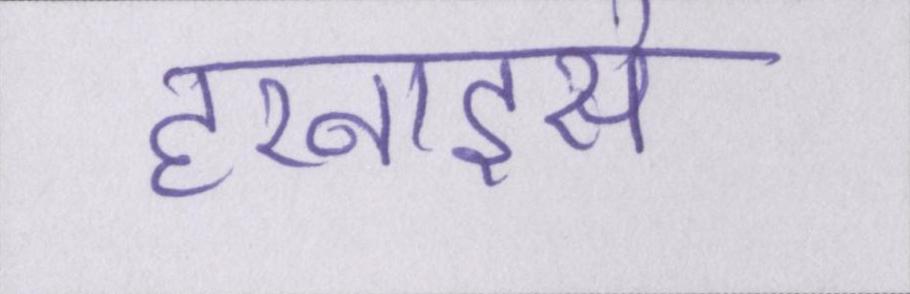 हरनाइसे